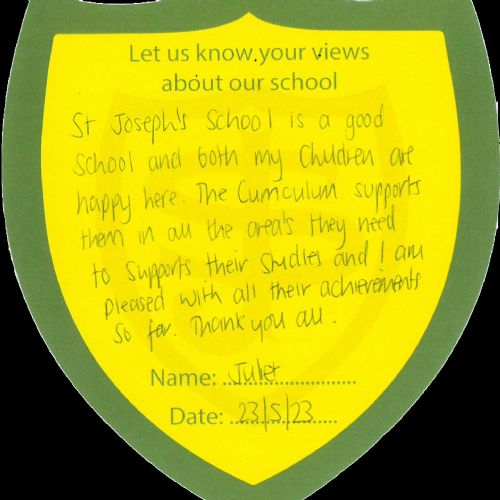 Let us know your views
about our school
St Joseph's School is a good
School and both my Children are
happy here. The Curriculum supports
them in all the area's they need
to supports their studies and I am
pleased with all their achievements
so far. Thank you all.
Name: Juliet
Date: 23/5/23